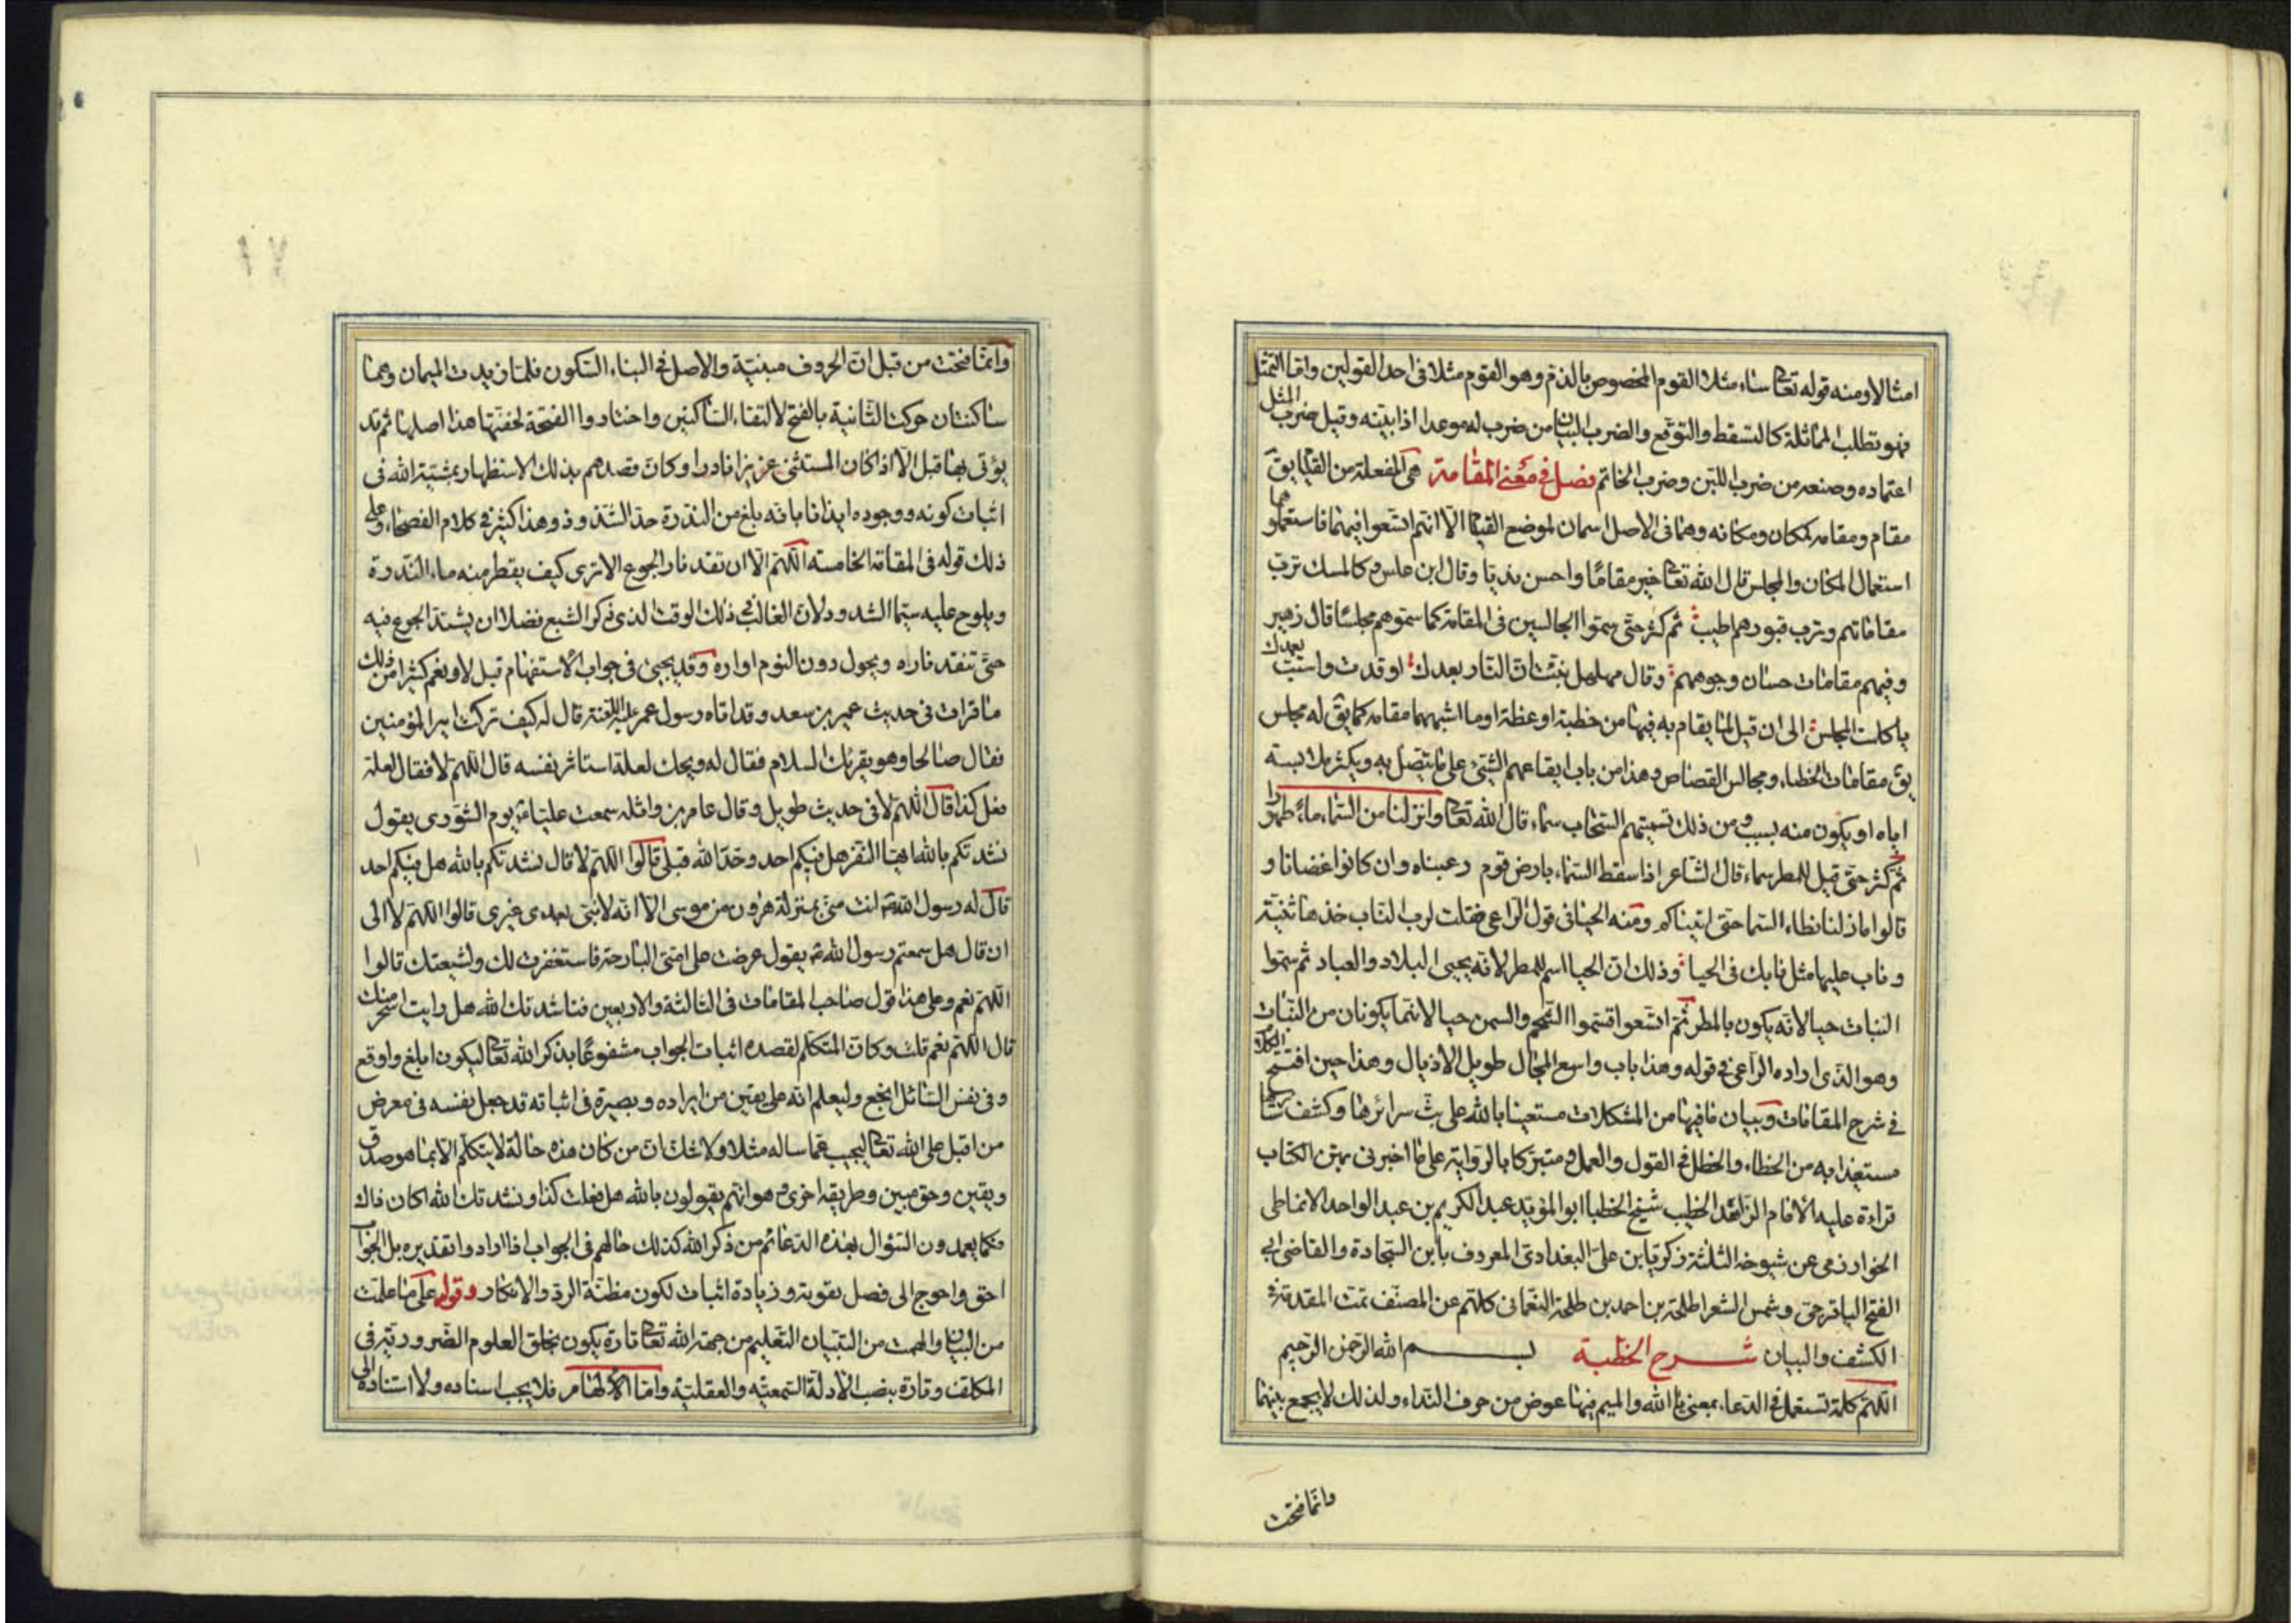 امثالا ومنه قوله تعالى ساء مثلا القوم المخصوص بالذم وهو القوم مثلا فى احد القولين واما التمثل
فهو تطلب المماثلة كالتسقط والتوقع والضرب البيان من ضرب له موعدا اذا بينه وقيل ضرب المثل
اعتماده وصنعه من ضرب اللبن وضرب الخاتم فصل فى معنى المقامة هى المفعلة من القيام يق
مقام ومقامه كمكان ومكانه وهما فى الاصل اسمان لموضع القيام الا انهم اتسعوا فيهما فاستعملوهما
استعمال المكان والمجلس قال الله تعالى خير مقاما واحسن نديا وقال ابن علس وكالمسك ترب
مقاماتهم وترب قبورهم اطيب ثم كثر حتى سموا الجالسين فى المقامة كما سموهم مجلسا قال زهير
وفيهم مقامات حسان وجوههم وقال مهلهل نبئت ان النار بعدك اوقدت واستب بعدك
يا كليب المجلس الى ان قيل لما يقام به فيها من خطبة او عظة او ما اشبههما مقامه كما يق له مجلس
يق مقامات الخطباء ومجالس القصاص وهذا من باب ايقاعهم الشئ على ما يتصل به ويكثر ملابسته
اياه او يكون منه بسبب ومن ذلك تسميتهم السحاب سماء قال الله تعالى وانزلنا من السماء ماء طهورا
ثم كثر حتى قيل للمطر سماء قال الشاعر اذا سقط السماء بارض قوم رعيناه وان كانوا غضابا و
قالوا ما زلنا نطاء السما حتى اتيناكم ومنه الحيا فى قول الراعى فقلت لرب الناب خذها ثنية
وناب عليها مثل نابك فى الحيا وذلك ان الحيا اسم للمطر لانه يحيى البلاد والعباد ثم سموا
النبات حيا لانه يكون بالمطر ثم اتسعوا فسموا الشحم والسمن حيا لانهما يكونان من النبات
وهو الذى اراده الراعى فى قوله وهذا باب واسع المجال طويل الاذيال وهذا حين افتتح الكلام
فى شرح المقامات وبيان ما فيها من المشكلات مستعينا بالله على بث سرائرها وكشف
مستعيذا به من الخطاء والخطل فى القول والعمل ومتبركا بالرواية على ما اخبرنى بمتن الكتاب
قراءة عليه الامام الزاهد الخطيب شيخ الخطبا ابو المؤيد عبد الكريم بن عبد الواحد الانماطى
الخوارزمى عن شيوخه الثلثة زكريا بن على البغدادى المعروف بابن السجادة والقاضى ابى
الفتح الباقرحى وشمس الشعرا طلحة بن احمد بن طلحة النعمانى كلهم عن المصنف تمت المقدمة فى
الكشف والبيان شرح الخطبة بسم الله الرحمن الرحيم
اللهم كلمة تستعمل فى الدعاء بمعنى يا الله والميم فيها عوض من حرف النداء ولذلك لا يجمع بينهما
وانما فتحت
وانما فتحت من قبل ان الحروف مبنية والاصل فى البناء السكون فلما زيدت الميمان وهما
ساكنتان حركت الثانية بالفتح لالتقاء الساكنين واختاروا الفتحة لخفتها هذا اصلها ثم قد
يؤتى بها قبل الا اذا كان المستثنى عزيزا نادرا وكان قصدهم بذلك الاستظهار بمشية الله فى
اثبات كونه ووجوده ايذانا بانه بلغ من الندرة حد الشذوذ وهذا كثير فى كلام الفصحاء وعلى
ذلك قوله فى المقامة الخامسة اللهم الا ان تقد نار الجوع الا ترى كيف يقطر منه ماء الندرة
ويلوح عليه سيما الشذوذ لان الغالب فى ذلك الوقت الذى ذكر الشبع فضلا ان يشتد الجوع فيه
حتى تنقد ناره ويحول دون النوم اواره وقد يجيئ فى جواب الاستفهام قبل لا ونعم كثيرا من ذلك
ما قرات فى حديث عمير بن سعد وقد اتاه رسول عمر عليه اللعنة قال له كيف تركت امير المؤمنين
فقال صالحا وهو يقرئك السلام فقال له ويحك لعله استاثر نفسه قال اللهم لا فقال لعله
فعل كذا قال اللهم لا فى حديث طويل وقال عامر بن واثله سمعت عليا يوم الشورى يقول
نشدتكم بالله ايها النفر هل فيكم احد وحد الله قبلى قالوا اللهم لا قال نشدتكم بالله هل فيكم احد
قال له رسول الله انت منى بمنزلة هرون من موسى الا انه لا نبى بعدى غيرى قالوا اللهم لا الى
ان قال هل سمعتم رسول الله يقول عرضت على امتى البارحة فاستغفرت لك ولشيعتك قالوا
اللهم نعم وعلى هذا قول صاحب المقامات فى الثالثة والاربعين فناشدتك الله هل رايت اسحر منك
قال اللهم نعم قلت وكان المتكلم لقصده اثبات الجواب مشفوعا بذكر الله تعالى ليكون ابلغ واوقع
وفى نفس السائل انجع وليعلم انه على يقين من ايراده وبصيرة فى اثباته قد جعل نفسه فى معرض
من اقبل على الله تعالى ليجيب عما ساله مثلا ولا شك ان من كان هذه حاله لا يتكلم الا بما هو صدق
ويقين وحق مبين وطريقه اخرى وهو انهم يقولون بالله هل فعلت كذا ونشدتك الله اكان ذاك
فكما يعمدون السؤال بهذه الدعائم من ذكر الله كذلك حالهم فى الجواب اذا ارادوا تقديره بل الجواب
احق واحوج الى فصل تقوية وزيادة اثبات لكون مظنة الرد والانكار وقوله على ما علمت
من البيان والهمت من التبيان التعليم من جهة الله تعالى تارة يكون بخلق العلوم الضرورية فى
المكلف وتارة بنصب الادلة السمعية والعقلية واما الالهام فلا يجب اسناده ولا استناده الى